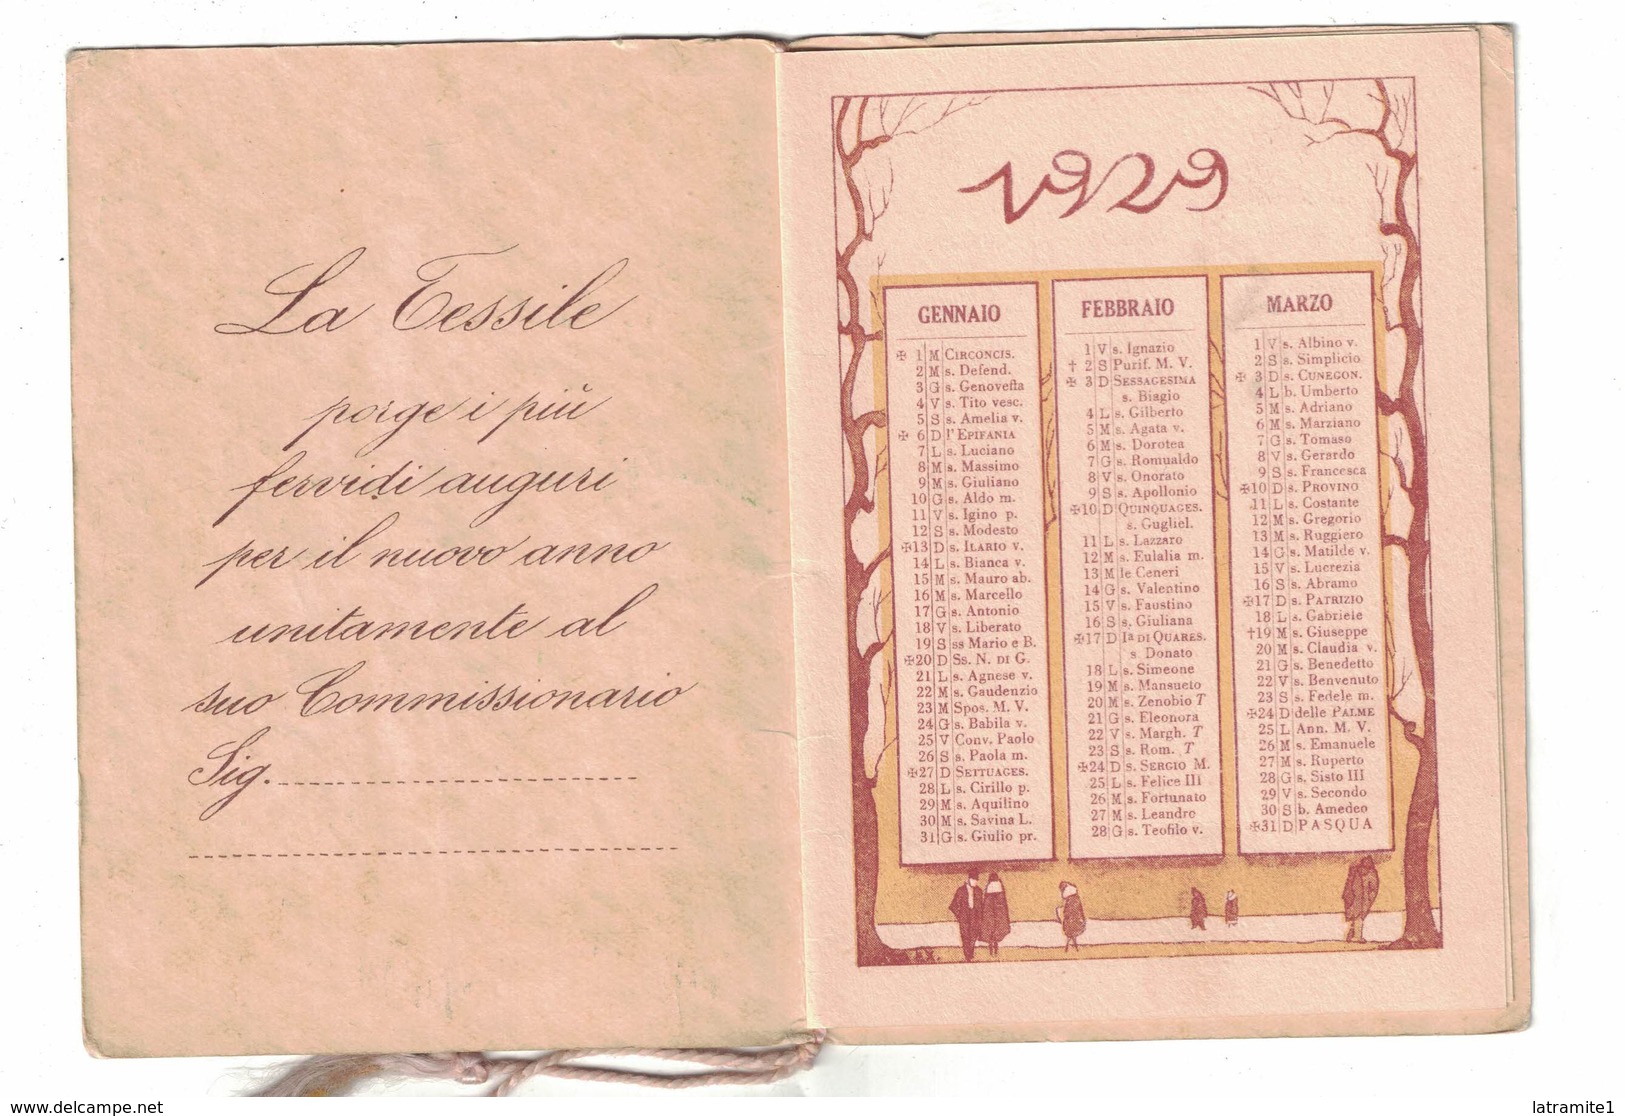 La Tessile
porge i più
fervidi auguri
per il nuovo anno
unitamente al
suo Commissionario
Sig.
1929
GENNAIO
✠ 1 M CIRCONCIS.
2 M s. Defend.
3 G s. Genoveffa
4 V s. Tito vesc.
5 S s. Amelia v.
✠ 6 D l'EPIFANIA
7 L s. Luciano
8 M s. Massimo
9 M s. Giuliano
10 G s. Aldo m.
11 V s. Igino p.
12 S s. Modesto
✠13 D s. ILARIO v.
14 L s. Bianca v.
15 M s. Mauro ab.
16 M s. Marcello
17 G s. Antonio
18 V s. Liberato
19 S ss Mario e B.
✠20 D Ss. N. DI G.
21 L s. Agnese v.
22 M s. Gaudenzio
23 M Spos. M. V.
24 G s. Babila v.
25 V Conv. Paolo
26 S s. Paola m.
✠27 D SETTUAGES.
28 L s. Cirillo p.
29 M s. Aquilino
30 M s. Savina L.
31 G s. Giulio pr.
FEBBRAIO
1 V s. Ignazio
† 2 S Purif. M. V.
✠ 3 D SESSAGESIMA
s. Biagio
4 L s. Gilberto
5 M s. Agata v.
6 M s. Dorotea
7 G s. Romualdo
8 V s. Onorato
9 S s. Apollonio
✠10 D QUINQUAGES.
s. Gugliel.
11 L s. Lazzaro
12 M s. Eulalia m.
13 M le Ceneri
14 G s. Valentino
15 V s. Faustino
16 S s. Giuliana
✠17 D Iª DI QUARES.
s. Donato
18 L s. Simeone
19 M s. Mansueto
20 M s. Zenobio T
21 G s. Eleonora
22 V s. Margh. T
23 S s. Rom. T
✠24 D s. SERGIO M.
25 L s. Felice III
26 M s. Fortunato
27 M s. Leandro
28 G s. Teofilo v.
MARZO
1 V s. Albino v.
2 S s. Simplicio
✠ 3 D s. CUNEGON.
4 L b. Umberto
5 M s. Adriano
6 M s. Marziano
7 G s. Tomaso
8 V s. Gerardo
9 S s. Francesca
✠10 D s. PROVINO
11 L s. Costante
12 M s. Gregorio
13 M s. Ruggiero
14 G s. Matilde v.
15 V s. Lucrezia
16 S s. Abramo
✠17 D s. PATRIZIO
18 L s. Gabriele
†19 M s. Giuseppe
20 M s. Claudia v.
21 G s. Benedetto
22 V s. Benvenuto
23 S s. Fedele m.
✠24 D delle PALME
25 L Ann. M. V.
26 M s. Emanuele
27 M s. Ruperto
28 G s. Sisto III
29 V s. Secondo
30 S b. Amedeo
✠31 D PASQUA
www.delcampe.net
latramite1